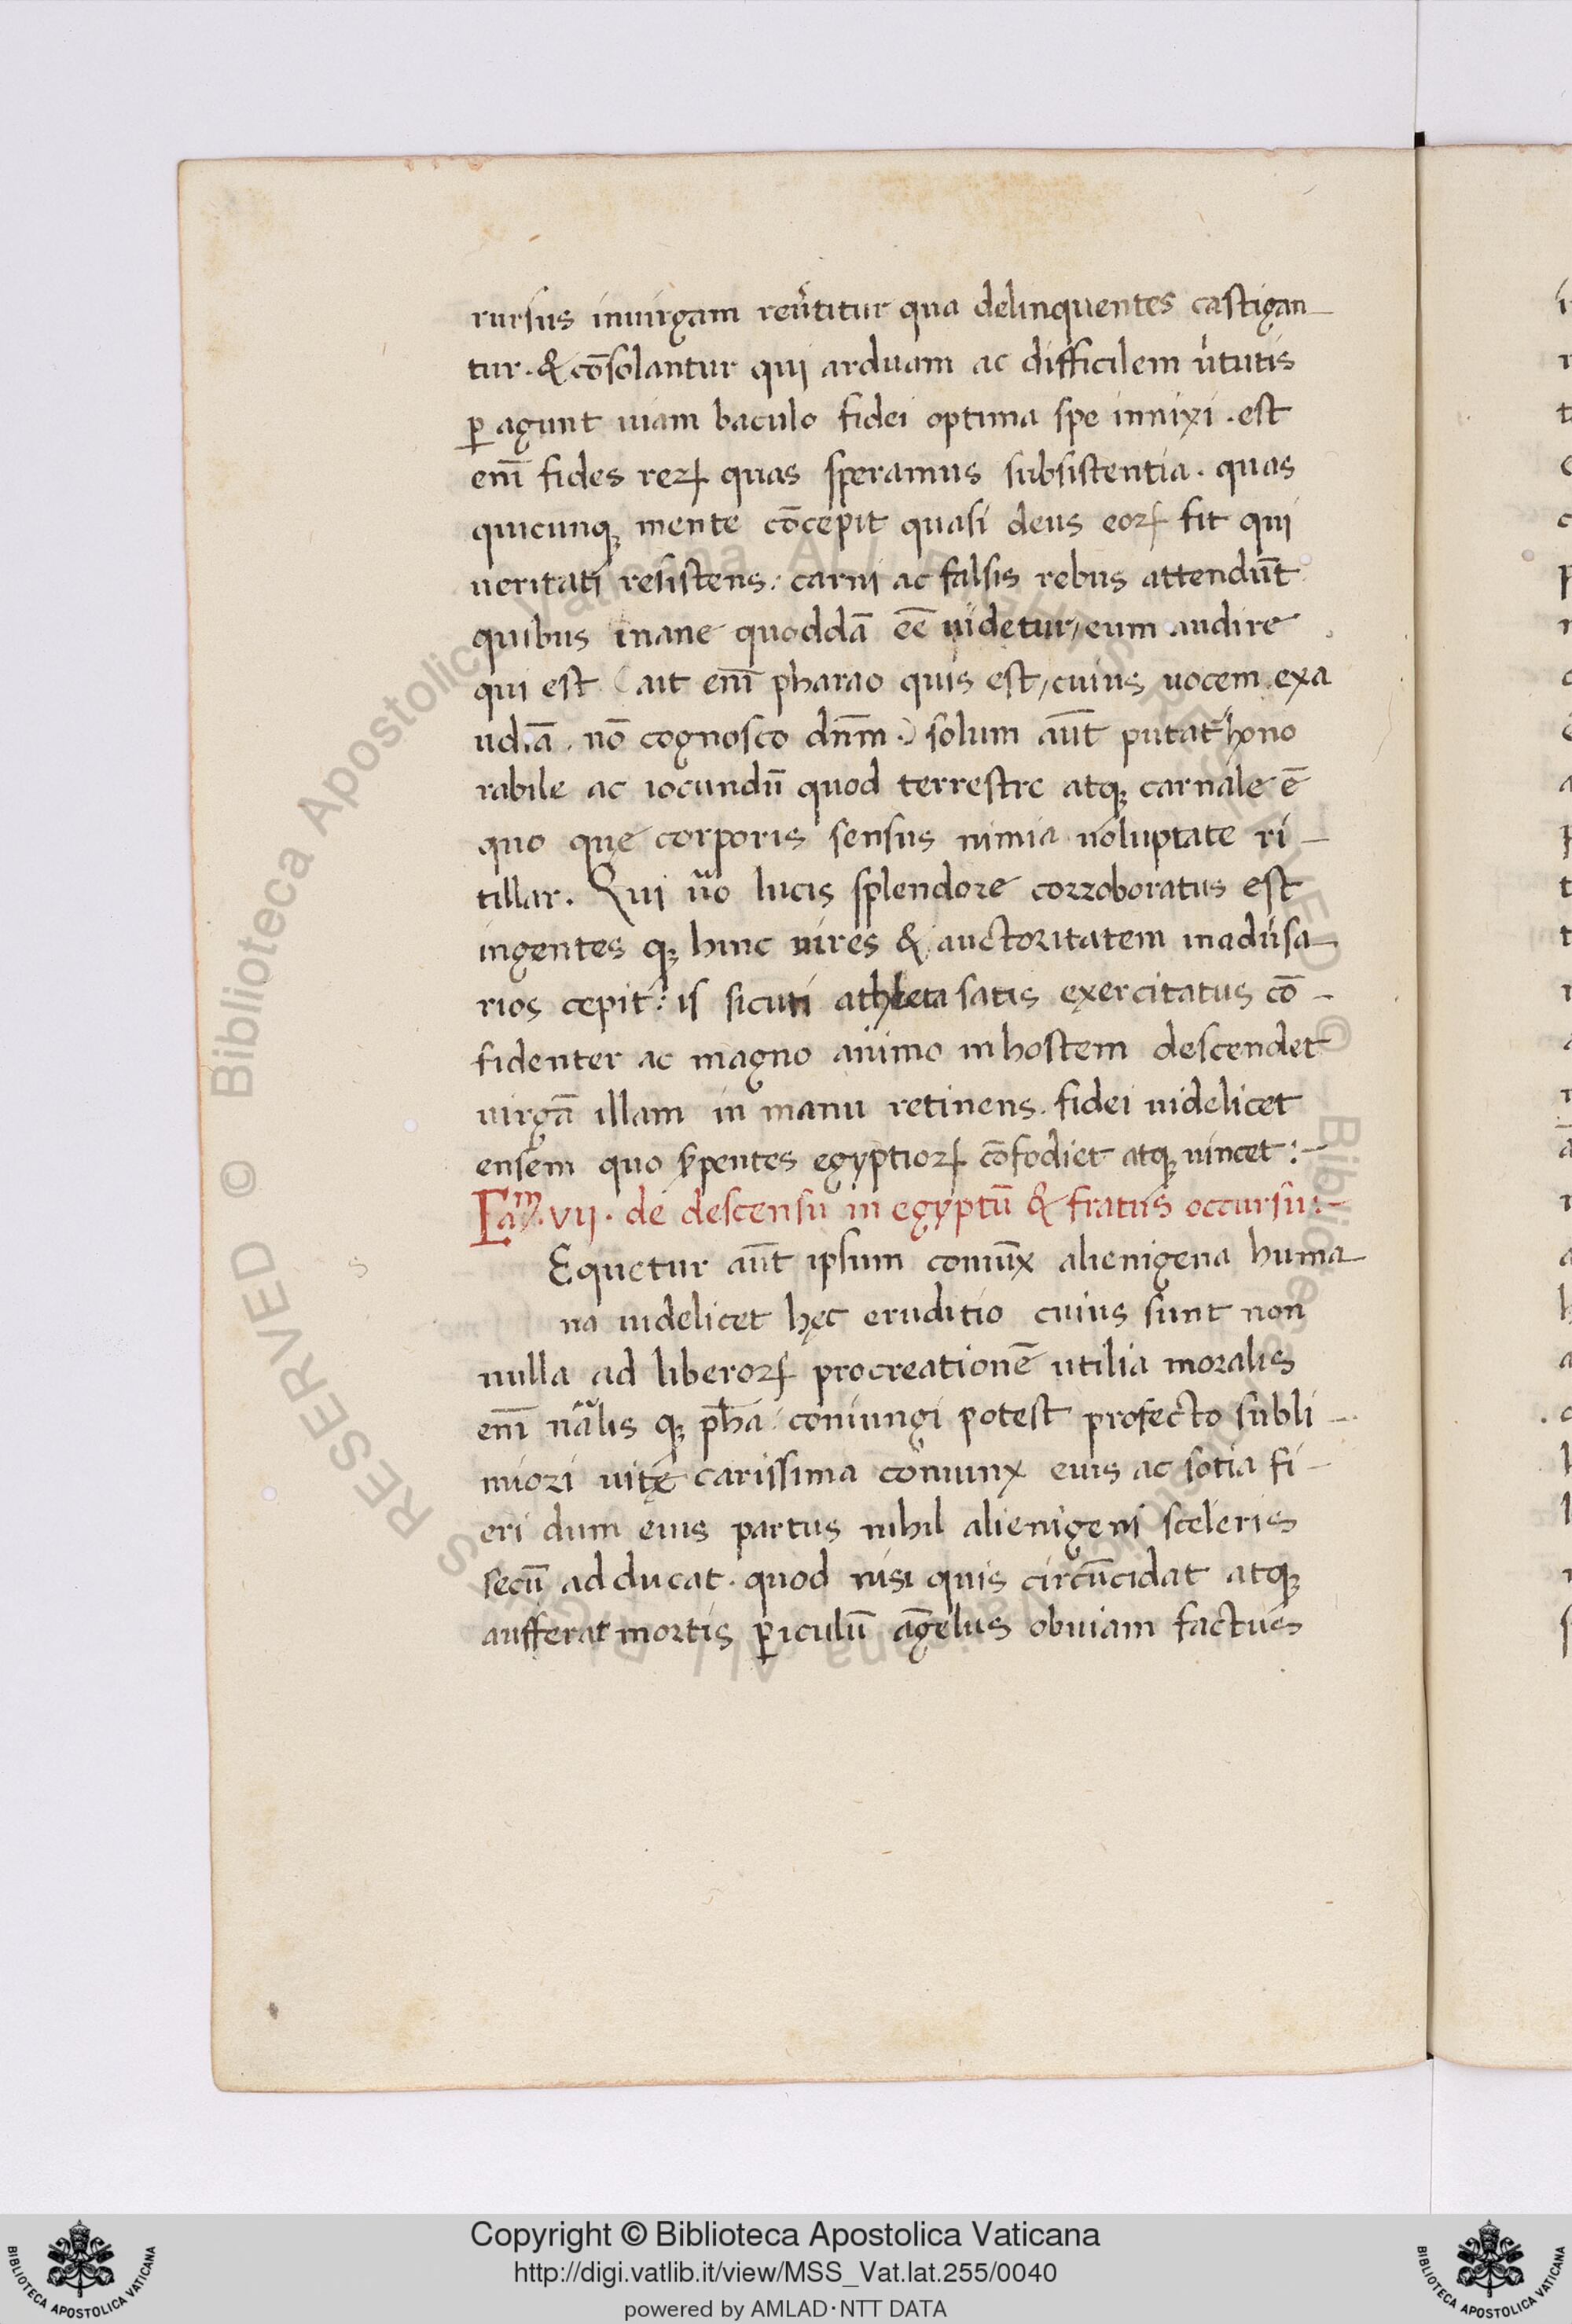 rursus inuirgam reũtitur qua delinquentes castigan-
tur. & cōsolantur qui arduam ac difficilem ũtutis
ꝑ agunt uiam baculo fidei optima spe innixi. est
enī fides reꝝ quas speramus subsistentia. quas
quicunqꝫ mente cōcepit quasi deus eoꝝ fit qui
ueritati resistens: carni ac falsis rebus attendūt
quibus inane quoddā eē uidetur/ eum audire
qui est (ait enī pharao quis est/ cuius uocem exa
udiā. nō cognosco dn̄m.) solum aūt putat hono
rabile ac iocundū quod terrestre atqꝫ carnale ē
quo quę corporis sensus nimia uoluptate ti-
tillat. Qui ũo lucis splendore corroboratus est
ingentes qꝫ hinc uires & auctoritatem inadũsa-
rios cepit: is sicuti athleta satis exercitatus cō-
fidenter ac magno animo inhostem descendet
uirgā illam in manu retinens. fidei uidelicet
ensem quo ẜpentes egyptioꝝ cōfodiet atqꝫ uincet:-
Caᵐ. vij. de descensu in egyptū & fratris occursu:-
Equetur aūt ipsum coniūx alienigena huma-
na uidelicet hęc eruditio cuius sunt non
nulla ad liberoꝝ procreationē utilia moralis
enī nālis qꝫ pħia coniungi potest profecto subli-
miori uitę carissima cōiunx eius ac sotia fi-
eri dum eius partus nihil alienigeni sceleris
secū adducat. quod nisi quis circūcidat atqꝫ
aufferat mortis ꝑiculū āgelus obuiam factus
s
Copyright © Biblioteca Apostolica Vaticana
http://digi.vatlib.it/view/MSS_Vat.lat.255/0040
powered by AMLAD·NTT DATA
BIBLIOTECA APOSTOLICA VATICANA
BIBLIOTECA APOSTOLICA VATICANA